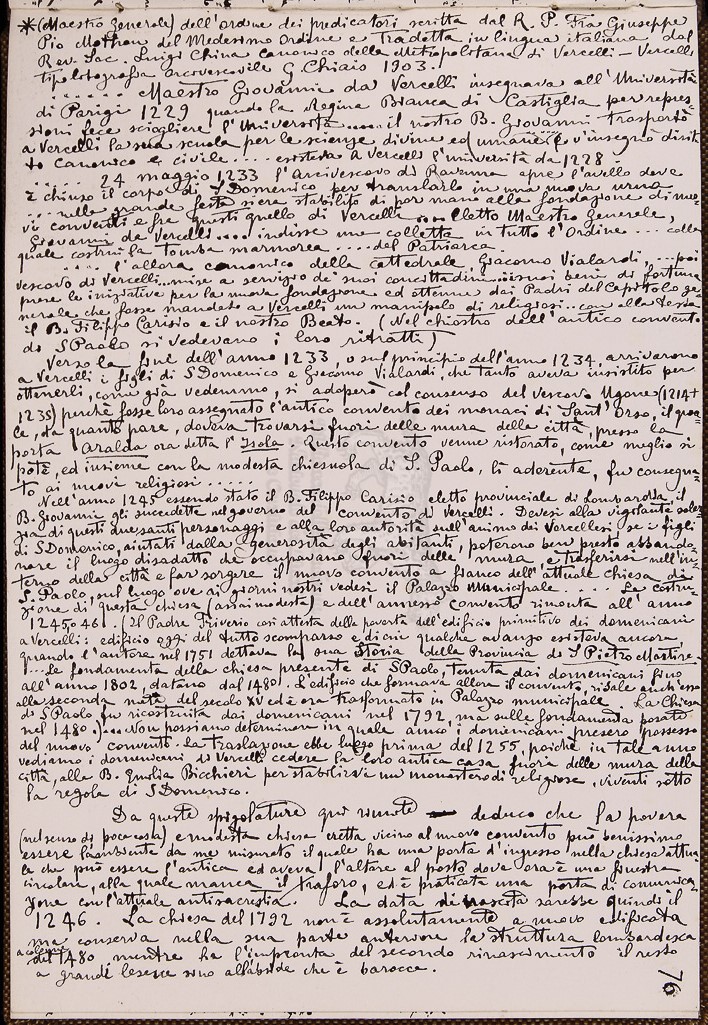 *(Maestro Generale) dell'Ordine dei predicatori scritta dal R. P. Fra Giuseppe
Pio Mothon del Medesimo Ordine e Tradotta in lingua italiana dal
Rev. Sac. Luigi China canonico della Metropolitana di Vercelli - Vercelli
tipolitografia Arcivescovile G. Chiais 1903.
...... Maestro Giovanni da Vercelli insegnava all'Università
di Parigi 1229 quando la Regina Bianca di Castiglia per repres-
sioni fece sciogliere l'Università..... il nostro B. Giovanni trasportò
a Vercelli la sua scuola per le scienze divine ed umane (e v'insegnò dirit-
to canonico e civile.... esisteva a Vercelli l'università da 1228 -
...... 24 maggio 1233 l'Arcivescovo di Ravenna apre l'avello dove
è chiuso il corpo di S Domenico per translarlo in una nuova urna
.... nelle grande feste si era stabilito di por mano alla fondazione di nuo-
vi conventi e fra questi quello di Vercelli .... Eletto Maestro Generale,
Giovanni da Vercelli.... indisse una colletta in tutto l'Ordine.... colla
quale costruì la tomba marmorea .... del Patriarca.
.... l'allora canonico della cattedrale Giacomo Vialardi, ... poi
vescovo di Vercelli... mise a servizio de' suoi concittadini... i suoi beni di fortuna
prese le iniziative per la nuova fondazione ed ottenne dai Padri del Capitolo ge-
nerale che fosse mandato a Vercelli un manipolo di religiosi... con alla testa
il B. Filippo Carisio e il nostro Beato. (Nel chiostro dell'antico convento
di S Paolo si vedevano i loro ritratti)
Verso la fine dell'anno 1233, o sul principio dell'anno 1234, arrivarono
a Vercelli i figli di S Domenico e Giacomo Vialardi, che tanto aveva insistito per
ottenerli, come già vedemmo, si adoperò col consenso del vescovo Ugone (1214+
1235) perchè fosse loro assegnato l'antico convento dei monaci di Sant'Orso, il qua-
le, da quanto pare, doveva trovarsi fuori delle mura della città, presso la
porta Aralda ora detta l'Isola. Questo convento venne ristorato, come meglio si
potè, ed insieme con la modesta chiesuola di S. Paolo, lì aderente, fu consegna-
to ai nuovi religiosi .....
Nell'anno 1245 essendo stato il B. Filippo Carisio eletto provinciale di Lombardia, il
B. Giovanni gli succedette nel governo del convento di Vercelli. Devesi alla vigilante soler-
zia di questi due santi personaggi e alla loro autorità sull'animo dei Vercellesi se i figli
di S Domenico, aiutati dalla generosità degli abitanti, poterono ben presto abbando-
nare il luogo disadatto che occupavano fuori delle mura e trasferirsi nell'in-
terno della città e far sorgere il nuovo convento a fianco dell'attuale chiesa di
S. Paolo, sul luogo ove ai giorni nostri vedesi il Palazzo Municipale .... La costru-
zione di questa chiesa (assai modesta) e dell'annesso convento rimonta all'anno
1245 o 46. (Il Padre così attesta della povertà dell'edificio primitivo dei domenicani
a Vercelli: edificio oggi del tutto scomparso e di cui qualche avanzo esisteva ancora,
quando l'autore nel 1751 dettava la sua Storia della Provincia di S Pietro Martire.
... Le fondamenta della chiesa presente di S Paolo, tenuta dai domenicani fino
all'anno 1802, datano dal 1480. L'edificio che formava allora il convento, risale anch'esso
alla seconda metà del secolo XV ed è ora trasformato in Palazzo municipale. La Chiesa
di S Paolo fu ricostruita dai domenicani nel 1792, ma sulle fondamenta posate
nel 1480.)... Non possiamo determinare in quale anno i domenicani presero possesso
del nuovo convento. La traslazione ebbe luogo prima del 1255, poichè in tale anno
vediamo i domenicani di Vercelli cedere la loro antica casa fuori delle mura della
città, alla B. Emilia Bicchieri per stabilirvi un monastero di religiose, viventi sotto
la regola di S Domenico.
Da queste spigolature qui riunite — deduco che la povera
(nel senso di poca cosa) e modesta chiesa eretta vicino al nuovo convento può benissimo
essere l'ambiente da me misurato il quale ha una porta d'ingresso nella chiesa attua-
le che può essere l'antica ed aveva l'altare al posto dove ora è una finestra
circolare, alla quale manca il traforo, ed è praticata una porta di comunica-
zione con l'attuale antisacrestia. La data di nascita sarebbe quindi il
1246. La chiesa del 1792 non è assolutamente a nuovo edificata
ma conserva nella sua parte anteriore la struttura lombardesca
a colonne del 1480 mentre ha l'impronta del secondo rinascimento il resto
a grandi lesene sino all'abside che è barocca.
76